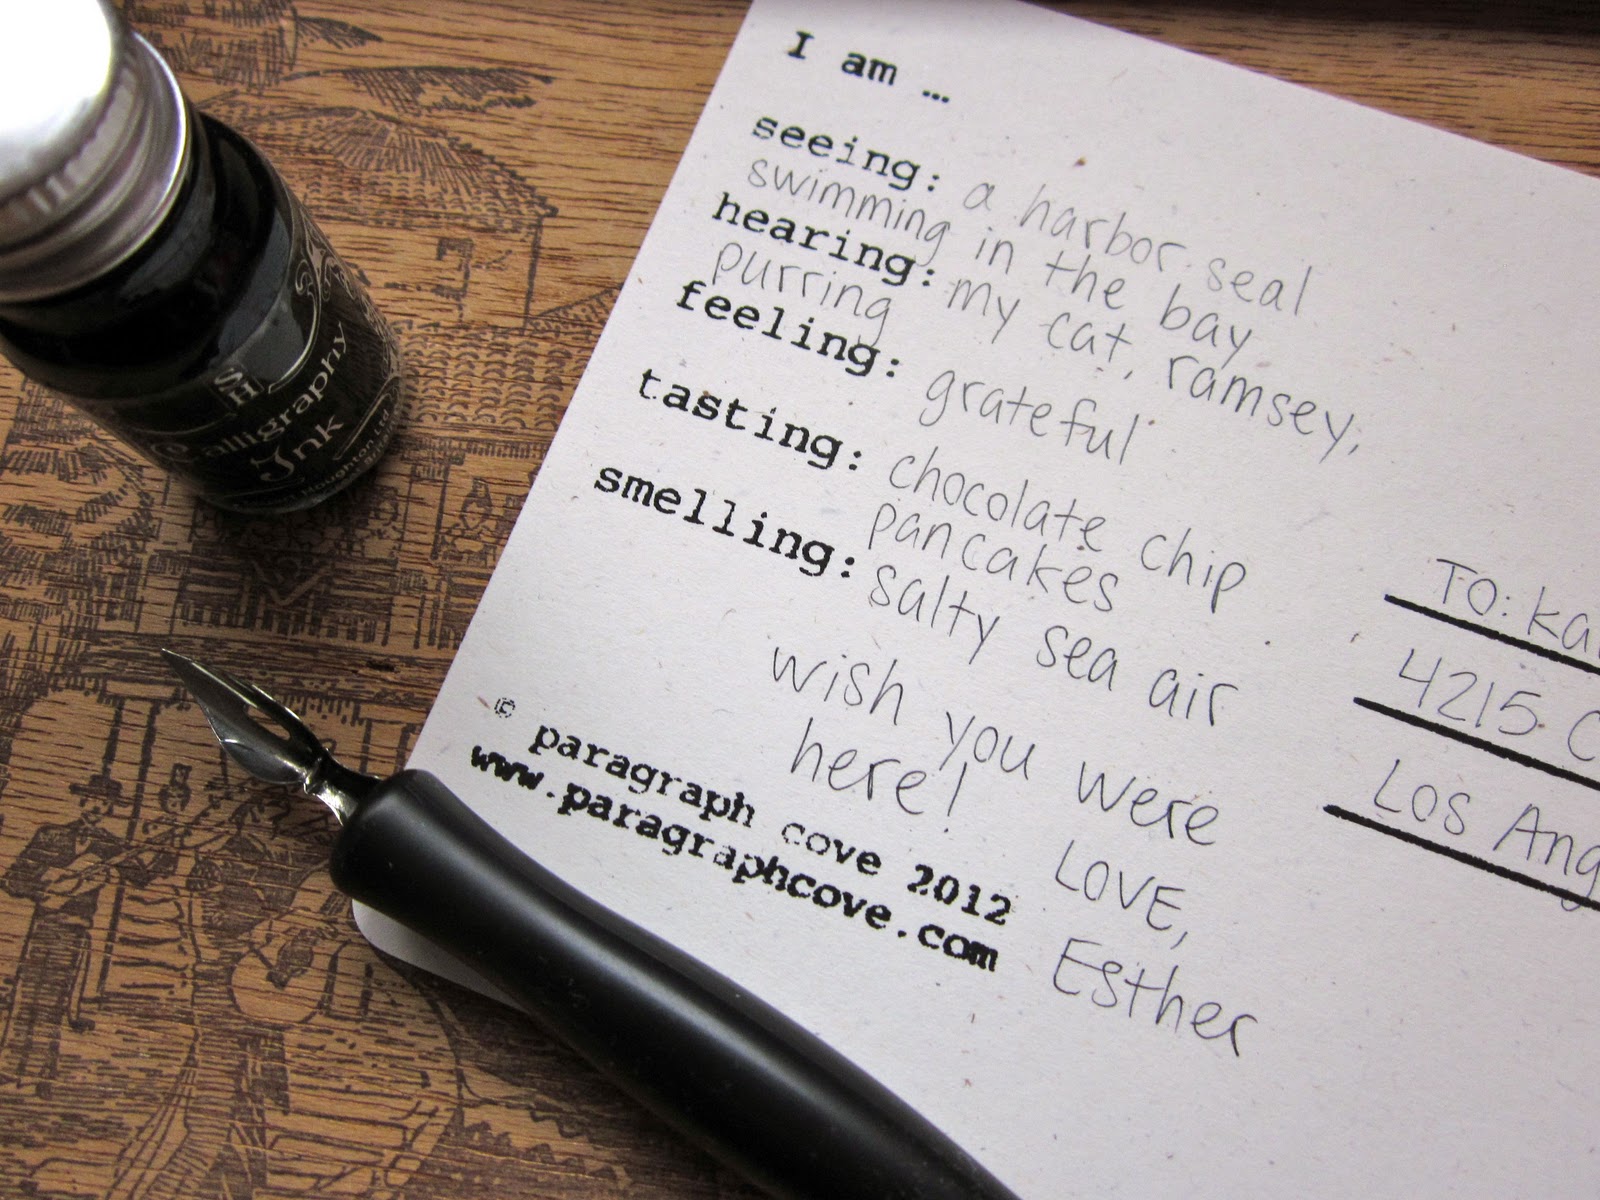 I am ...
seeing: a harbor seal
swimming in the bay
hearing: my cat, ramsey,
purring
feeling: grateful
tasting: chocolate chip
pancakes
smelling: salty sea air
wish you were
here!
Love,
Esther
© paragraph cove 2012
www.paragraphcove.com
TO:
4215
Los
SH
Calligraphy
Ink